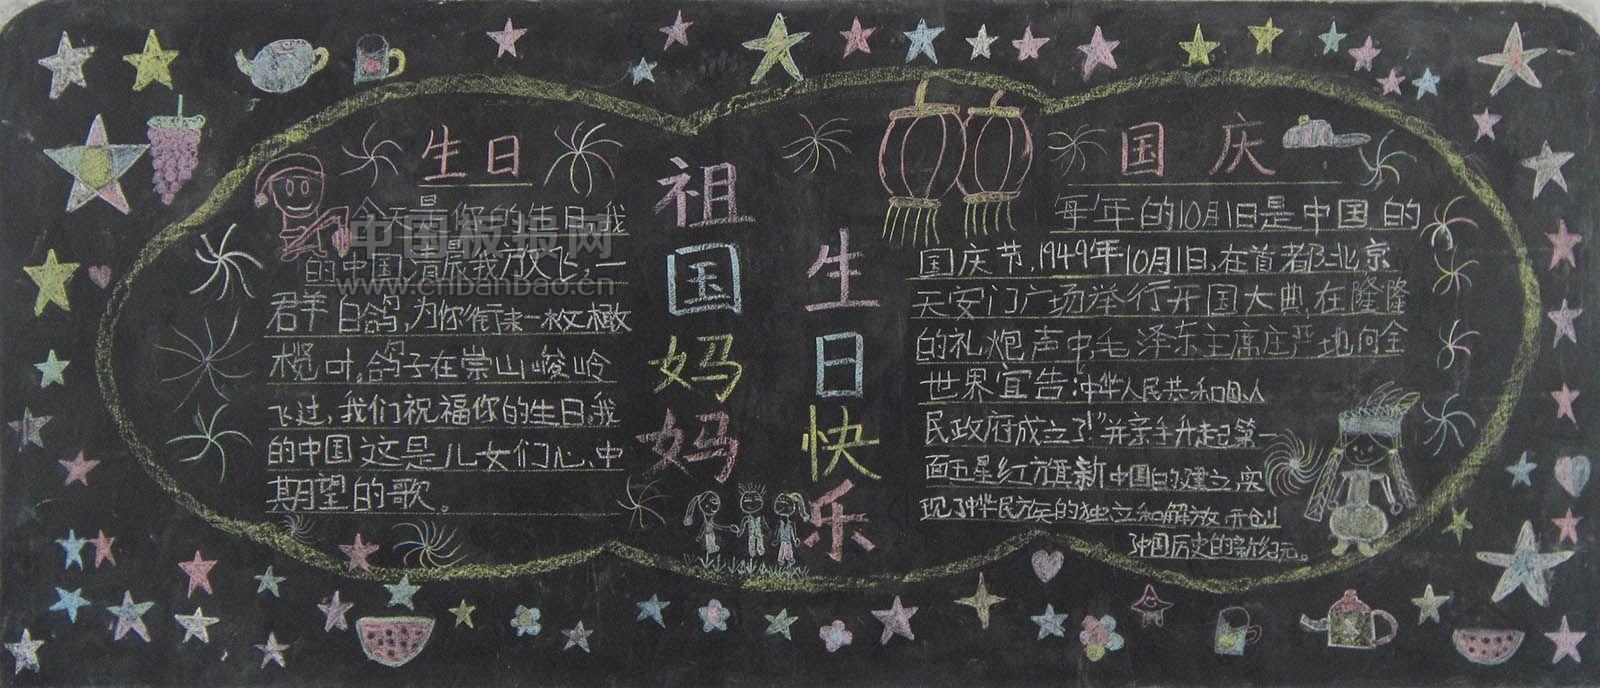 生日
今天是你的生日,我
的中国,清晨我放飞,一
君羊白鸽,为你衔来一枚橄
榄叶,鸽子在崇山峻岭
飞过,我们祝福你的生日,我
的中国这是儿女们心中
期望的歌。
祖国妈妈
生日快乐
国庆
每年的10月1日是中国的
国庆节,1949年10月1日,在首都北京
天安门广场举行开国大典,在隆隆
的礼炮声中毛泽东主席庄严地向全
世界宣告:中华人民共和国人
民政府成立了!"并亲手升起第一
面五星红旗新中国的建立,实
现了中华民族的独立和解放开创
了中国历史的新纪元。
中国板报网
www.cnbanbao.cn